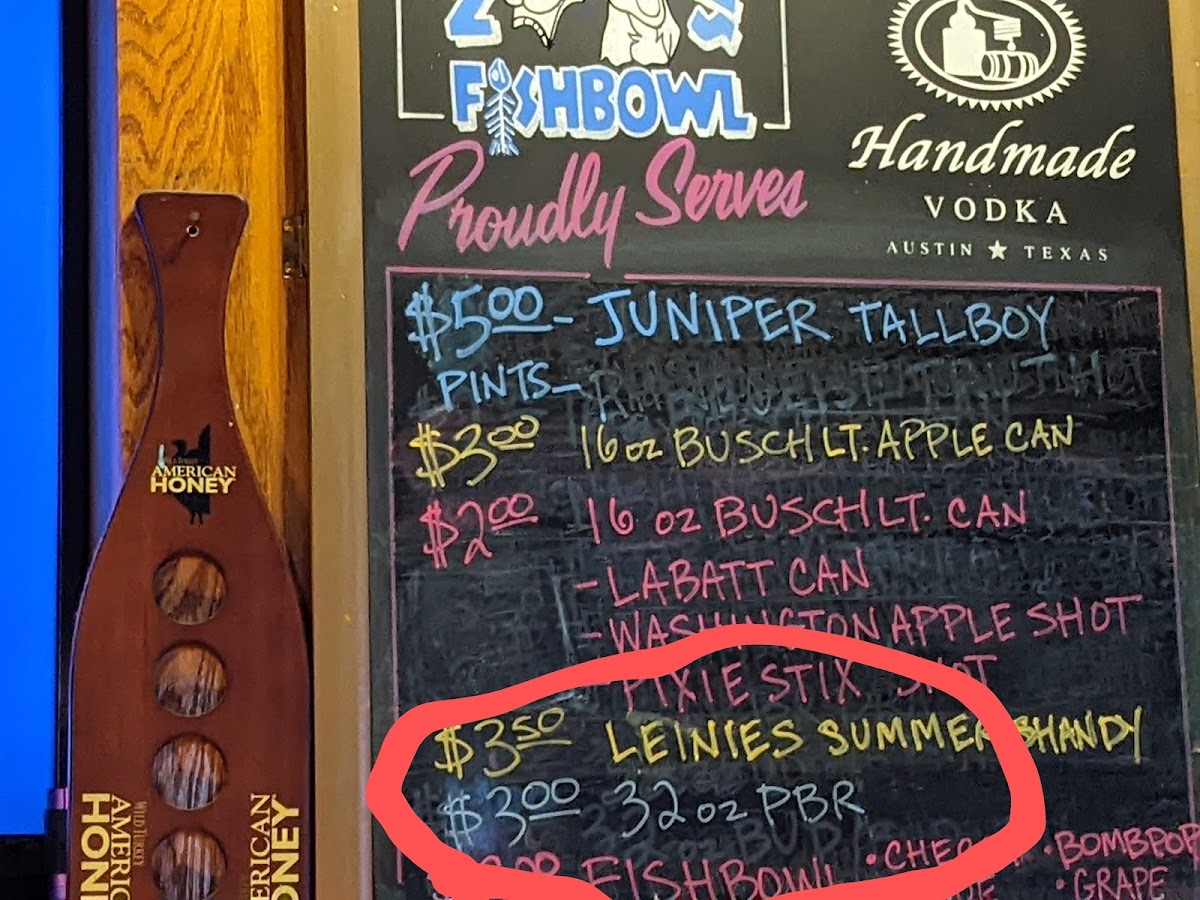 FISHBOWL
Proudly Serves
Handmade
VODKA
AUSTIN ★ TEXAS
$5.00 - JUNIPER TALLBOY
PINTS -
$3.00 16 oz BUSCH LT. APPLE CAN
$2.00 16 oz BUSCH LT. CAN
- LABATT CAN
- WASHINGTON APPLE SHOT
PIXIE STIX SHOT
$3.50 LEINIES SUMMER SHANDY
$3.00 32 oz PBR
FISHBOWL
• BOMBPOP
• GRAPE
AMERICAN
HONEY
WILD TURKEY
AMERIC
HON
ERICAN
ONEY